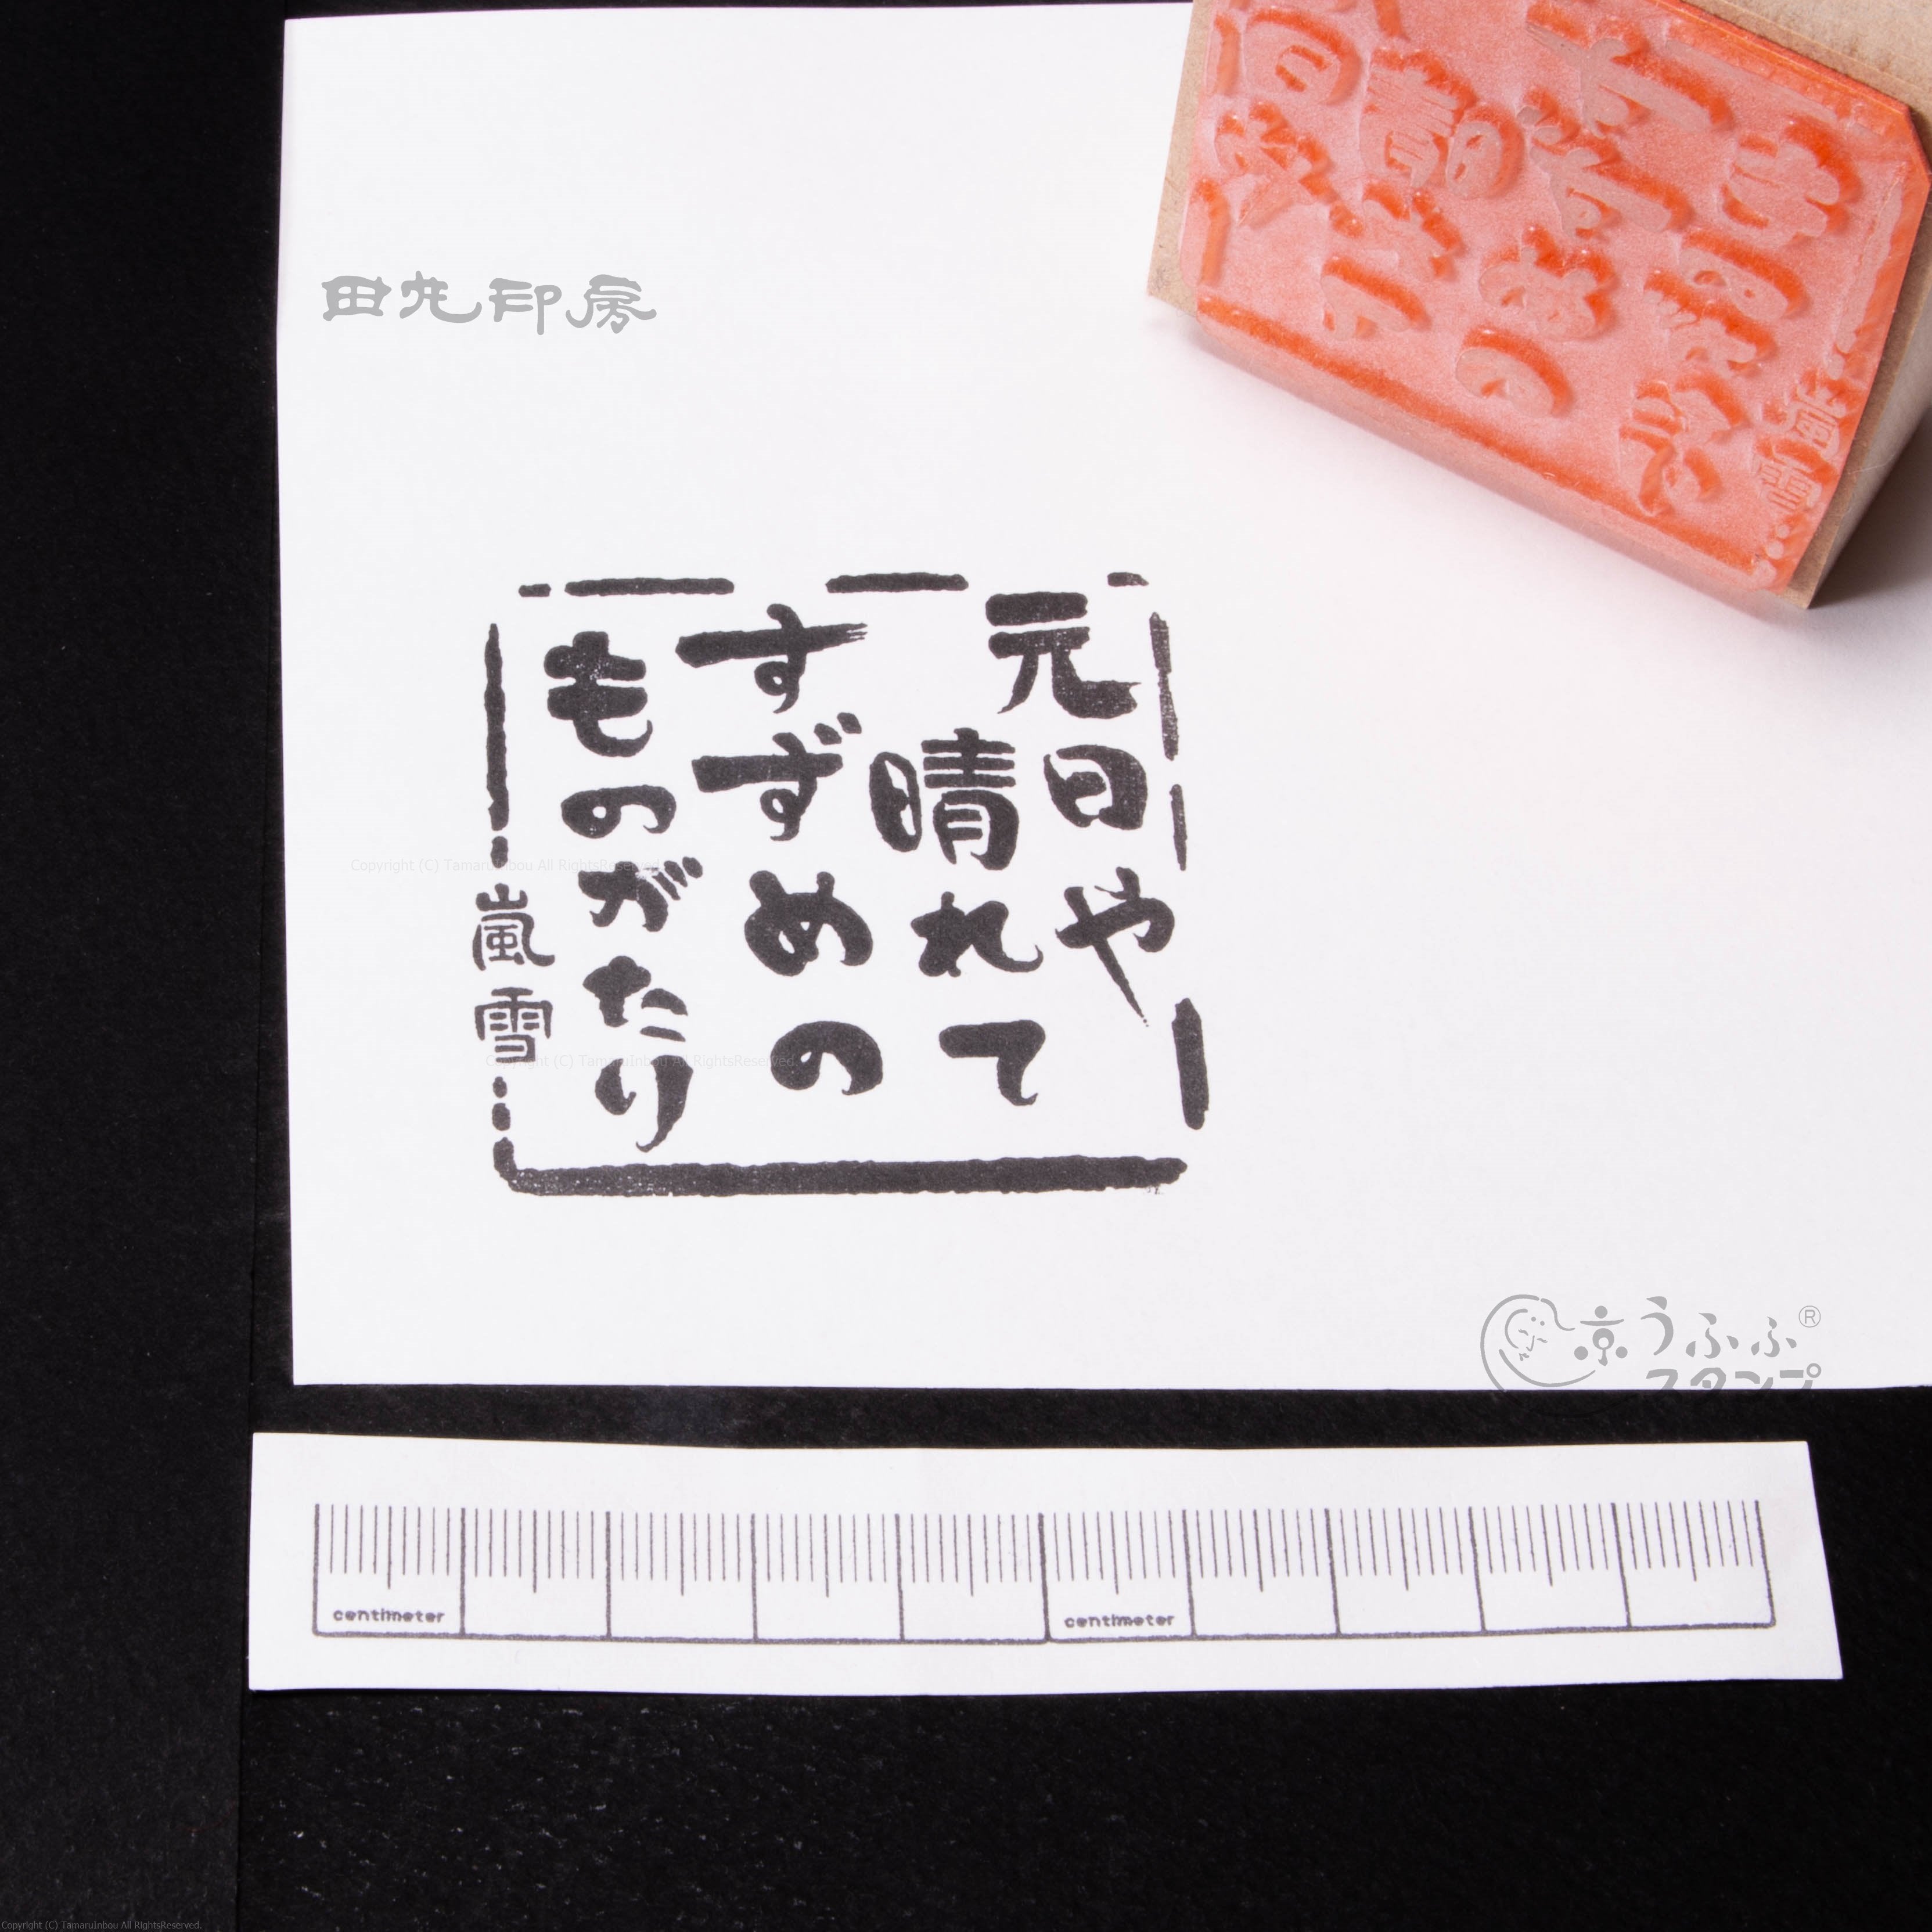 田丸印房
元日や
晴れて
すずめの
ものがたり
嵐雪
Copyright (C) TamaruInbou All RightsReserved.
Copyright (C) TamaruInbou All RightsReserved.
京うふふ®
スタンプ
centimeter
centimeter
Copyright (C) TamaruInbou All RightsReserved.